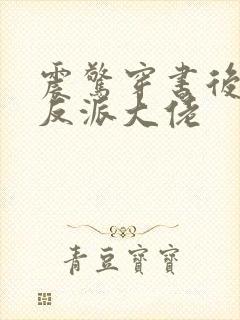 震驚穿書後
反派大佬
青豆寶寶